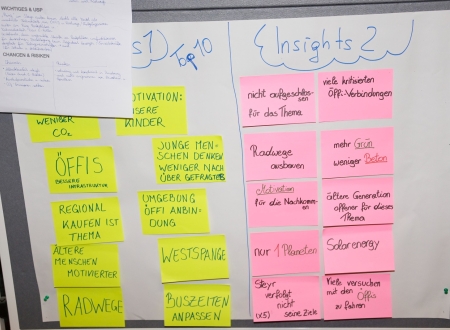 WICHTIGES & USP
CHANCEN & RISIKEN
s 1)
Top 10
WENIGER
CO₂
MOTIVATION:
UNSERE
KINDER
ÖFFIS
BESSERE
INFRASTRUKTUR
JUNGE MEN-
SCHEN DENKEN
WENIGER NACH
ÜBER GEFRAGTES
REGIONAL
KAUFEN IST
THEMA
UMGEBUNG
ÖFFI ANBIN-
DUNG
ÄLTERE
MENSCHEN
MOTIVIERTER
WESTSPANGE
RADWEGE
BUSZEITEN
ANPASSEN
Insights 2
nicht aufgeschlos-
sen
für das Thema
viele kritisierten
Öff. Verbindungen
Radwege
ausbauen
mehr Grün
weniger Beton
Motivation
für die Nachkomm-
en
ältere Generation
offener für dieses
Thema
nur 1 Planeten
Solarenergy
Steyr
verfolgt
nicht
(x5) seine Ziele
Viele versuchen
mit den Öffis
zu fahren